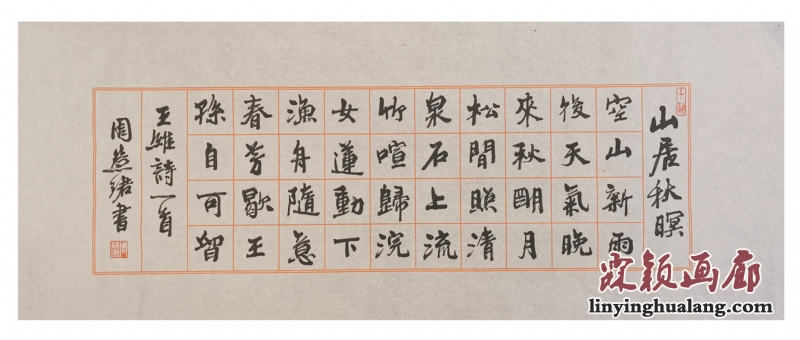 山居秋暝
空山新雨
後天氣晚
來秋明月
松間照清
泉石上流
竹喧歸浣
女蓮動下
漁舟隨意
春芳歇王
孫自可留
王維詩一首
周書
霖颖画廊
linyinghualang.com